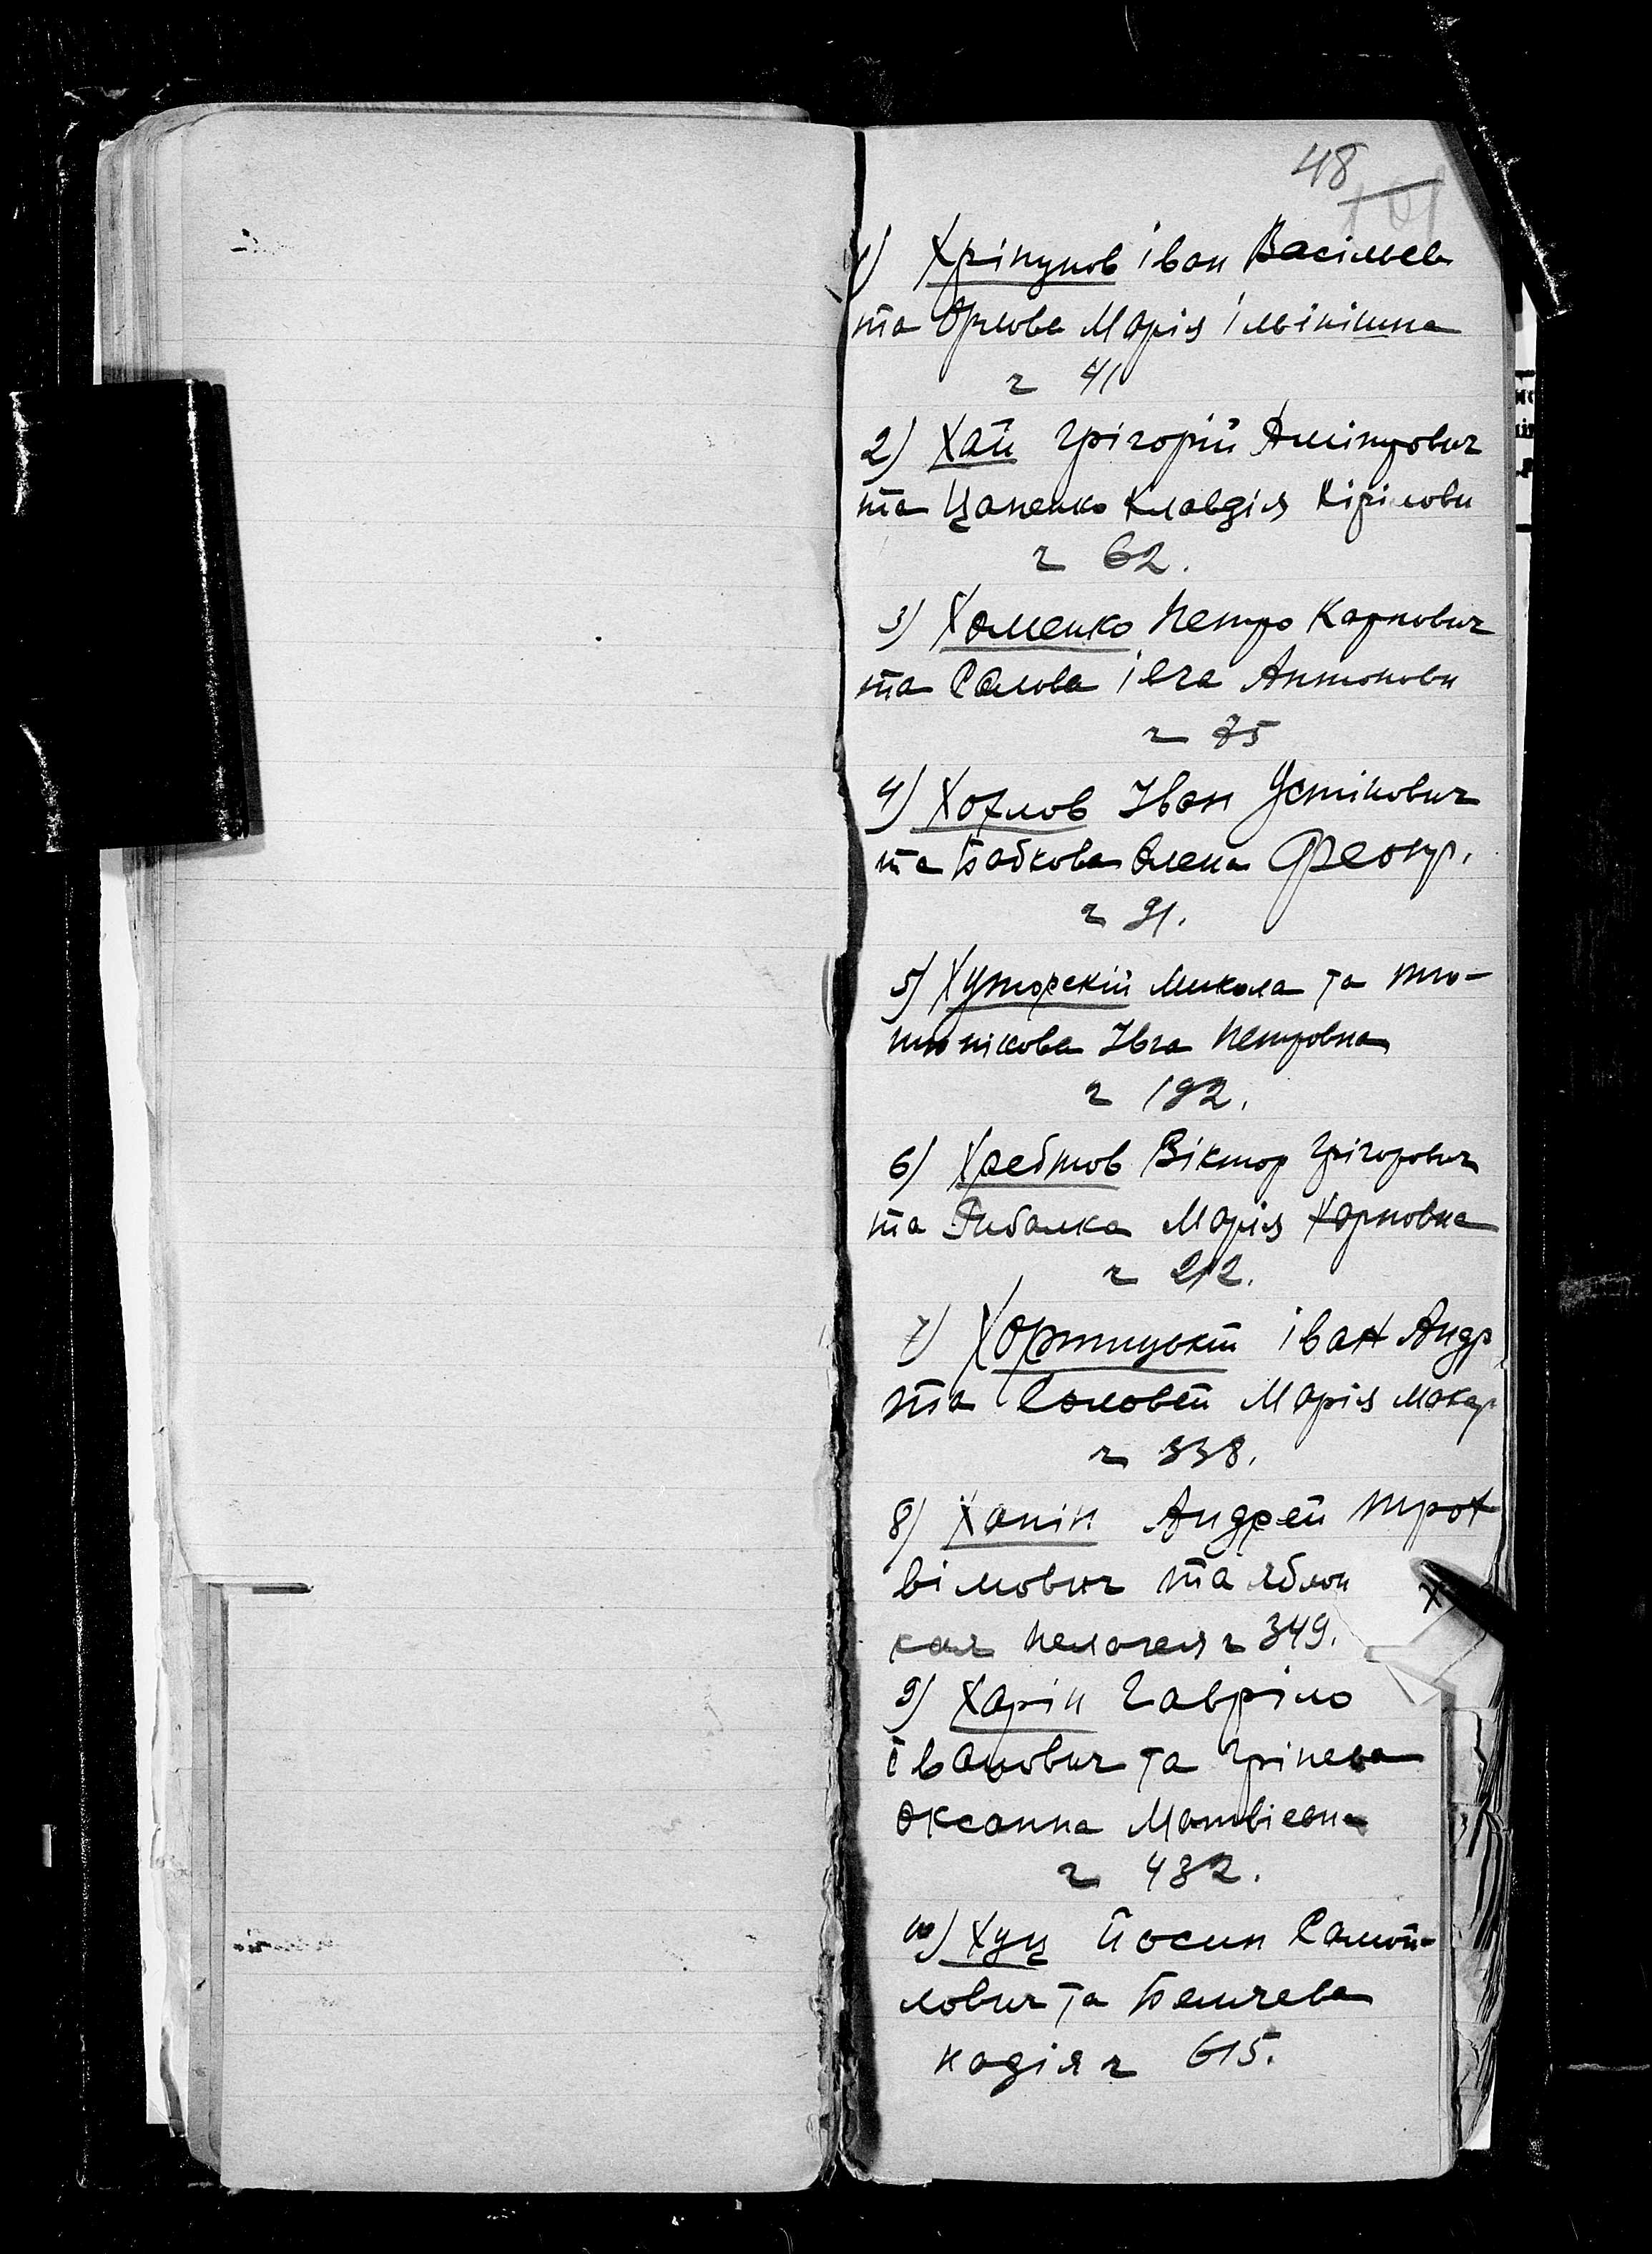 48
101
1) Хріпунов іван Васільев
та Орлова Марія ільінішна
ч 41
2) Хай Грігорій Дмітрович
та Цапенко Клавдія Кіріловн
ч 62.
3) Хоменко Петро Карпович
та Салова івга Антоновн
ч 75
4) Хохлов Іван Устінович
та Бабкова Олена Феокр.
ч 91.
5) Хуторскій Микола та тю-
тюнікова Івга Петровна
ч 192.
6) Хребтов Віктор Грігорович
та Рибалка Марія Карповна
ч 212.
7) Хортицький іван Андр
та Соловей Марія Макар
ч 338.
8) Ханін Андрей трох
вімович та яблон
ская Пелагея ч 349.
Х
9) Харін Гавріло
іванович та Грінева
Оксанна Матвієвна
ч 432.
10) Хуц Йосип Самой-
лович та Бемчева
надія ч 615.